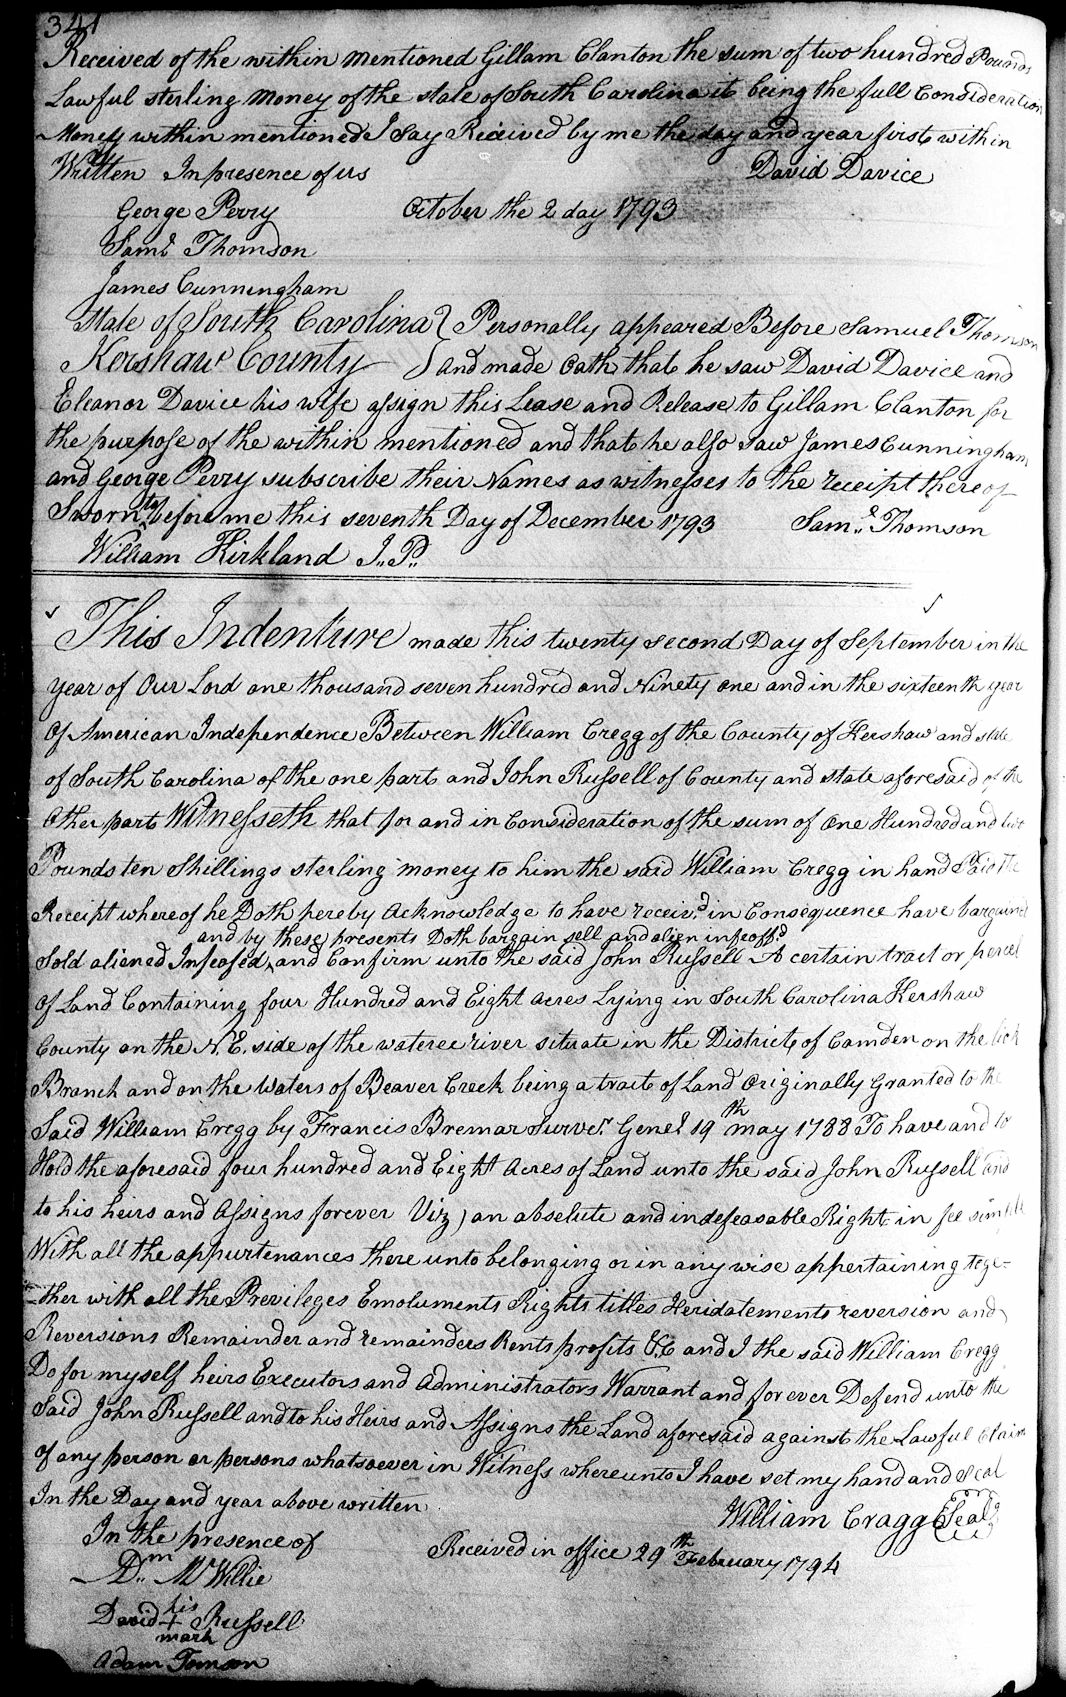 341
Received of the within mentioned Gillam Clanton the sum of two hundred Pounds
Lawful sterling money of the state of South Carolina it being the full Consideration
Money within mentioned I say Received by me the day and year first within
Written In presence of us David Davice
George Perry October the 2 day 1793
Saml Thomson
James Cunningham
State of South Carolina } Personally appeared Before Samuel Thomson
Kershaw County } and made oath that he saw David Davice and
Eleanor Davice his wife assign this Lease and Release to Gillam Clanton for
the purpose of the within mentioned and that he also saw James Cunningham
and George Perry subscribe their Names as witnesses to the receipt thereof
Sworn to before me this seventh Day of December 1793 Saml. Thomson
William Kirkland J.. P..
This Indenture made this twenty second Day of September in the
year of Our Lord one thousand seven hundred and Ninety one and in the sixteenth year
Of American Independence Between William Cregg of the County of Kershaw and state
of South Carolina of the one part and John Russell of County and state aforesaid of the
Other part Witnesseth that for and in Consideration of the sum of one Hundred and
Pounds ten Shillings sterling money to him the said William Cregg in hand Paid the
Receipt whereof he Doth hereby Acknowledge to have receiv.d in Consequence have bargained
and by these presents Doth bargain sell and alien infeoff.d
Sold aliened Infeofed ^ and Confirm unto the said John Russell A certain tract or parcel
Of Land Containing four Hundred and Eight Acres Lying in South Carolina Kershaw
County on the N. E. side of the wateree river situate in the District of Camden on the lick
Branch and on the Waters of Beaver Creek being a tract of Land Originally Granted to the
Said William Cregg by Francis Bremar Surver. Genel 19th may 1788 To have and to
Hold the aforesaid four hundred and Eight Acres of Land unto the said John Russell and
to his heirs and Assigns forever Viz) an absolute and indefeasable Right in fee simple
With all the appurtenances there unto belonging or in any wise appertaining toge-
-ther with all the Previleges Emoluments Rights titles Heridatements reversion and
Reversions Remainder and remainders Rents profits &C and I the said William Cregg
Do for myself heirs Executors and Administrators Warrant and forever Defend unto the
Said John Russell and to his Heirs and Assigns the Land aforesaid against the Lawful claim
Of any person or persons whatsoever in Witness whereunto I have set my hand and Seal
In the Day and year above written William Cragg (Seal)
In the presence of Received in office 29th February 1794
Dm Mc Willie
David his + mark Russell
Adam Tomson